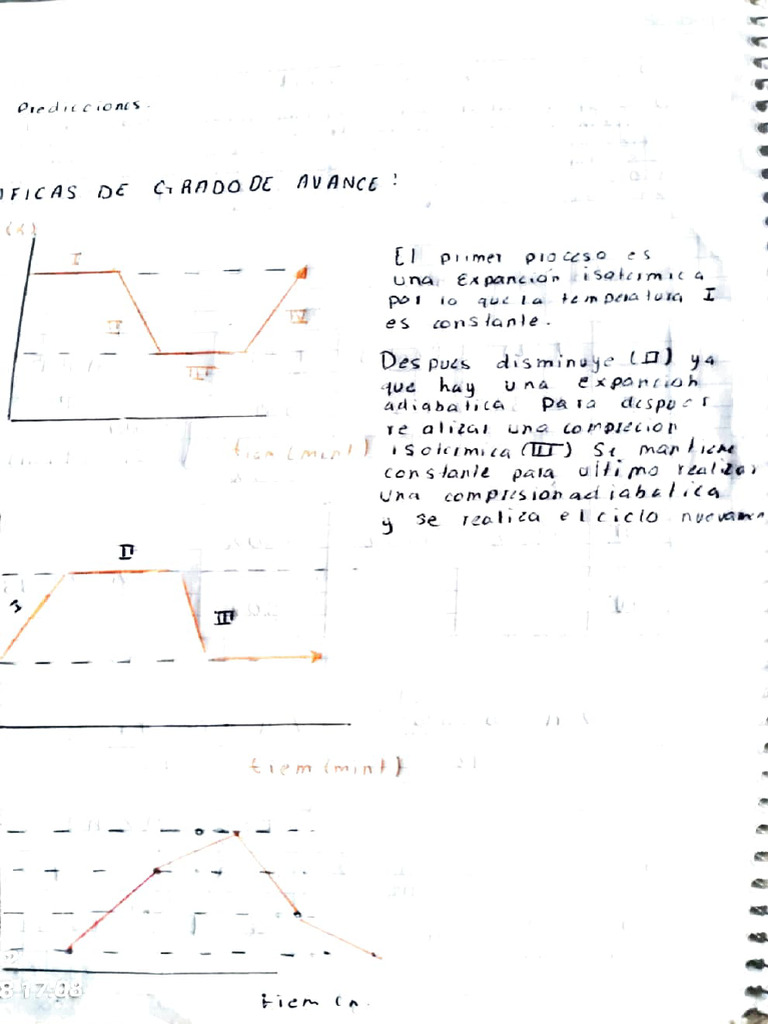 Predicciones.
FICAS DE GRADO DE AVANCE:
(K)
I
II
III
IV
El primer proceso es
una Expanción isotermica
por lo que la temperatura I
es constante.
Despues disminuye (II) ya
que hay una expancion
adiabatica. Para despues
realizar una compresion
isotermica (III) Se mantiene
constante para ultimo realizar
una compresion adiabatica
y se realiza el ciclo nuevamen
tiem (mint)
II
III
tiem (mint)
tiem (